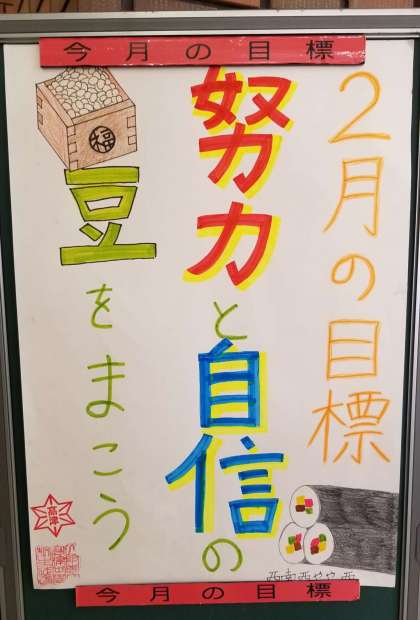 今月の目標
2月の目標
努力と自信の
豆をまこう
福
西南西やや西
今月の目標